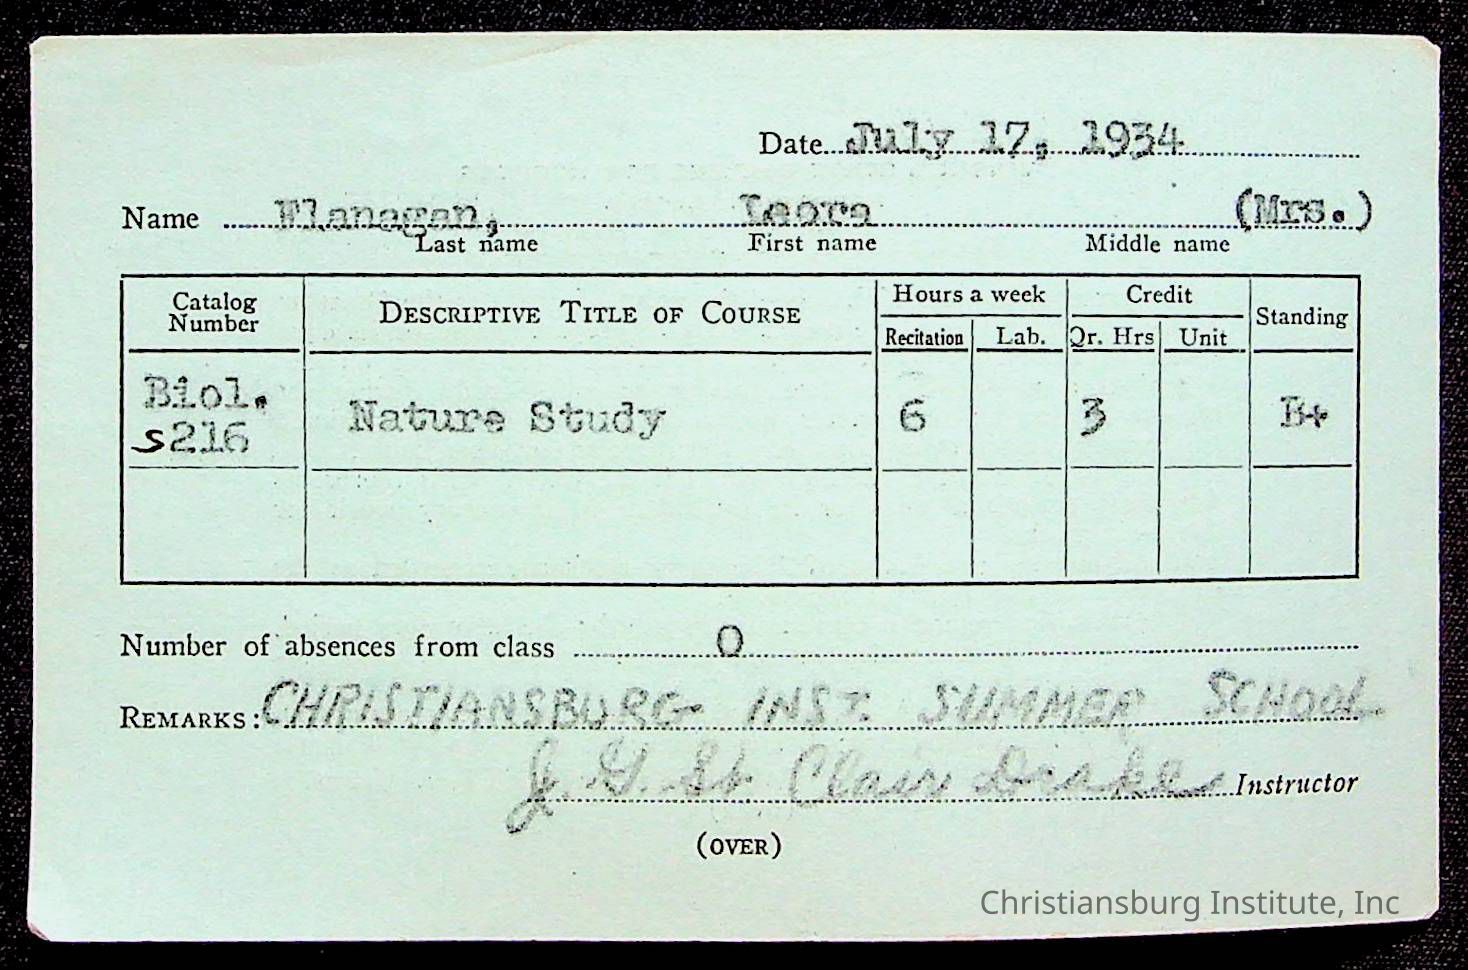 Date July 17, 1934
Name Flanagan, Leora (Mrs.)
Last name First name Middle name
Catalog Number DESCRIPTIVE TITLE OF COURSE Hours a week Credit Standing
Recitation Lab. Qr. Hrs Unit
Biol. s216 Nature Study 6 3 B+
Number of absences from class 0
REMARKS: CHRISTIANSBURG INST. SUMMER SCHOOL
J. G. St Clair Drake Instructor
(OVER)
Christiansburg Institute, Inc